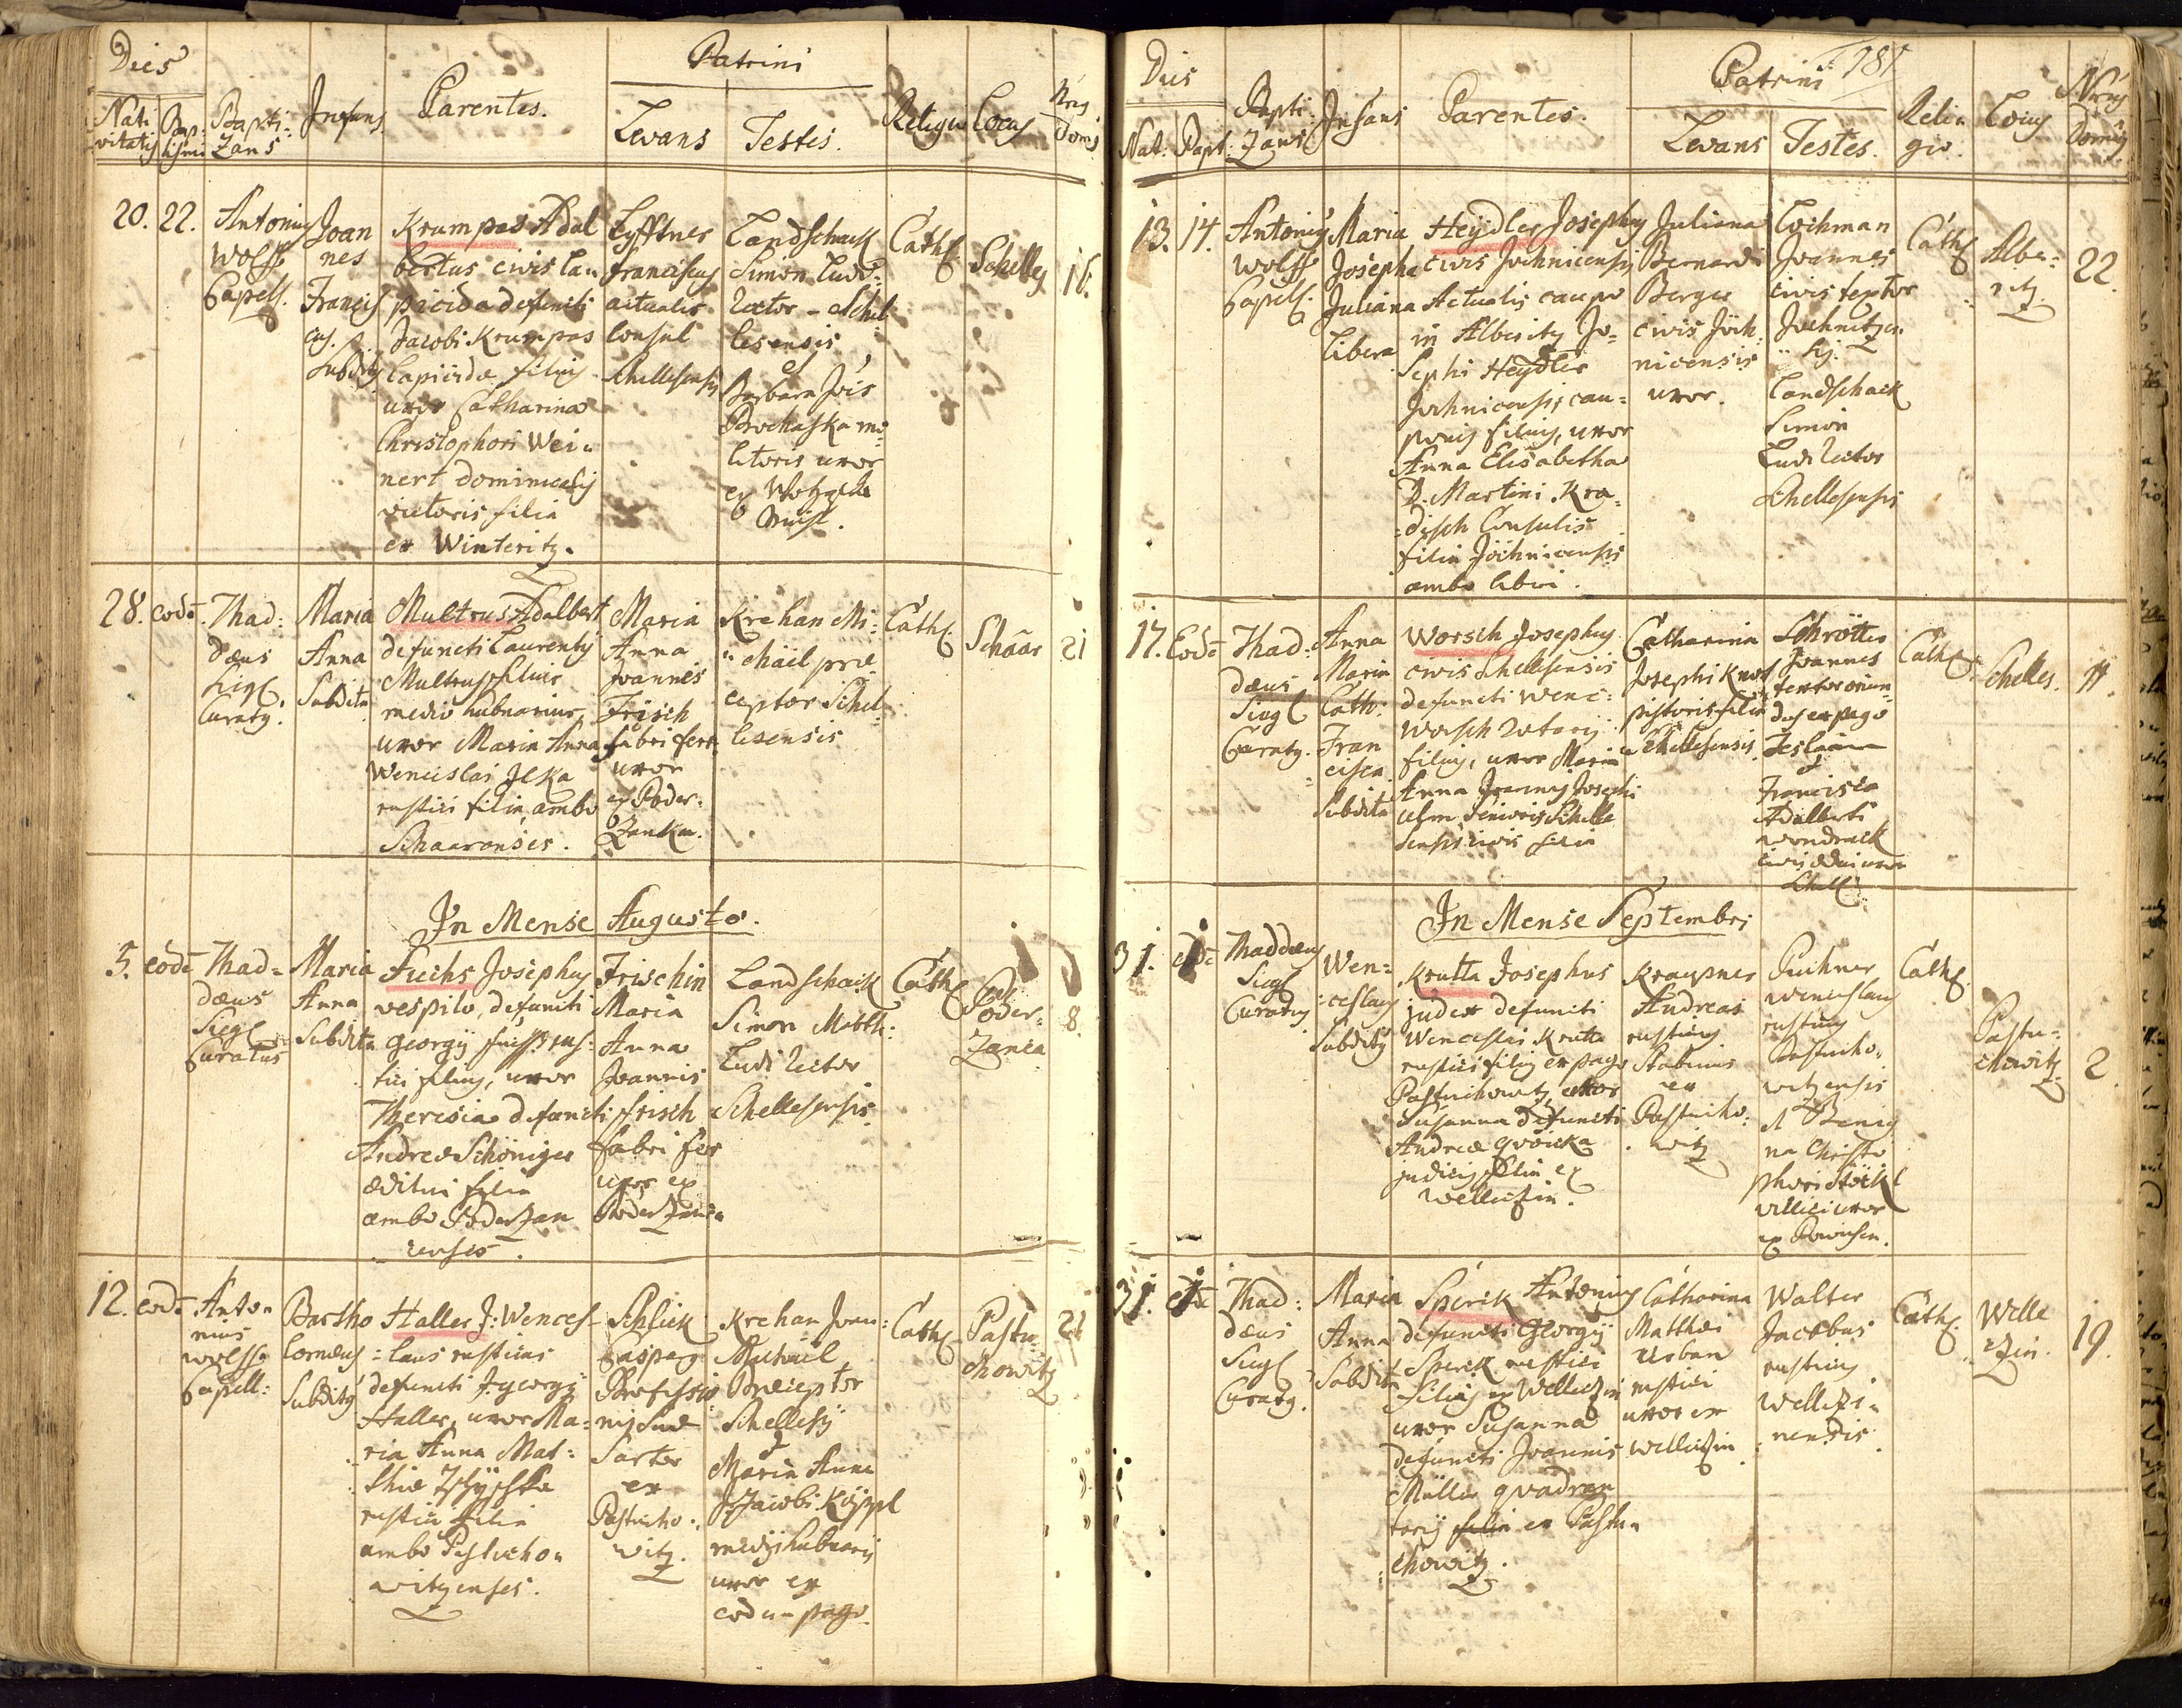 Dies
Patrini
Nati
vitatis
Bap:
tismi
Bapti:
zans
Infans
Parentes.
Levans
Testes.
Religio
Locus
Nrus
Domus
20.
22.
Antonius
Wolff
Capell.
Joan
nes
Francis
cus.
Subditus
Krumpas Adal
bertus civis lau
picida defuncti
Jacobi Krumpas
lapicidæ filius
uxor Catharina
Christophori Wei=
nert dominicalis
victoris filia
ex Winteritz.
Lyfftner
Franciscus
actualis
Consul
Schellesensis
Landschack
Simon Ludi
Rector Schel
lesensis
et
Barbara Jois
Prochaska mo
litoris uxor
ex
Cath.
Schelles
16.
28.
eode.
Thad:
dæus
Sigl
Curatus.
Maria
Anna
Subdita
Multrus Adalbert
defuncti Laurentij
Multrus filius
medio hubnarius
uxor Maria Anna
Wenceslai Jlka
rustici filia, ambo
Schaaronses.
Maria
Anna
Joannes
Frisch
fabri ferr
uxor
ex Poder:
Zanka.
Krehan Mi:
chäel præ
ceptor Schel
lesensis
Cath.
Schaar
21
In Mense Augusto.
5.
eode
Thad=
dæus
Siegl
Curatus
Maria
Anna
Subdita
Fuchs Josephus
vespilo, defuncti
Georgij fuchs rus:
tici filius, uxor
Theresia defuncti
Andreæ Schöniger
æditui filia
ambo Poderzan
censes.
Frischin
Maria
Anna
Joannis
frisch
fabri fer
uxor ex
Poderzanca
Landschack
Simon Matth:
Ludi Rector
Schellesensis
Cath.
Poder=
Zanca
8.
12.
eode
Anto=
nius
Wolff
Capell:
Bartho
lomæus
Subditus
Haller J: Wences
laus rusticus
defuncti Georgij
Haller, uxor Ma=
ria Anna Mat:
thiæ
rustici filia
ambo Pastucho=
witzenses.
Schlick
Caspar
Professio
nis suæ
Sartor
ex
Pastucho:
witz.
Krehan Joan:
Michael
Præceptor
Schellesij
et
Maria Anna
Jacobi Köppl
medij hubnarij
uxor ex
eodem pago.
Cath.
Pastu
chowitz
21
1781
Dies
Patrini
Nat:
Bapt:
Bapti
Zans
Infans
Parentes.
Levans
Testes.
Reli=
gio.
Locus
Nrus
Domus
13.
14.
Antonius
Wolff
Capell.
Maria
Josepha
Juliana
Libera
Heydler Josephus
civis Jechnicensis
Actualis caupo
in Alberitz Jo=
sephi Heydler
Jechnicensis cau=
ponis filius, uxor
Anna Elisabetha
D. Martini Kra=
disch Consulis
filia Jechnicensis
ambo liberi.
Juliana
Bernardi
Berger
civis Jech
nicensis
uxor.
Lochman
Joannes
civis textor
Jechnitzen
sis.
Landschack
Simon
Ludi Rector
Schellesensis
Cath.
Albe=
ritz.
22.
17.
Eode
Thad:
dæus
Siegl
Curatus.
Anna
Maria
Cath:
Fran
cisca
Subdita
Worsch Josephus
civis Schellesensis
defuncti Wenc:
Worsch Rotarij
filius, uxor Maria
Anna Joannis Josephi
Ulm senioris Schelle
sensis civis filia
Catharina
Josephi Knot
pistoris filia
Schellesensis
Schrötter
Joannes
textor oriun
dus ex pago
et
Francisca
Adalberti
Wondrack
civis ædui uxor
Schell
Cath.
Schelles.
11.
In Mense Septembri
31.
eode
Thaddæus
Siegl
Curatus
Wen=
ceslaus
Subditus
Krutta Josephus
judex defuncti
Wenceslai Krutta
rustici filius ex pago
Pastuchowitz, uxor
Susanna defuncti
Andreæ
judicis filia ex
Welletzin.
Kraupner
Andreas
rusticus
Stabinus
ex
Pastucho:
witz
Puchner
Wenceslaus
rusticus
Pastucho=
witzensis
et Benig
na Christo
phori Stöckl
villici uxor
ex
Cath.
Pastu=
chowitz
2.
31.
eode
Thad:
dæus
Siegl
Curatus.
Maria
Anna
Subdita
Sperk Antonius
defuncti Georgij
Sperk rustici
filius ex Welletzin
uxor Susanna
defuncti Joannis
Müller quadran
tarij filia ex Pastu=
chowitz.
Catharina
Matthæi
Urban
rustici
uxor ex
Welletzin.
Walter
Jacobus
rusticus
Welletzi=
nensis.
Cath.
Welle
tzin.
19.